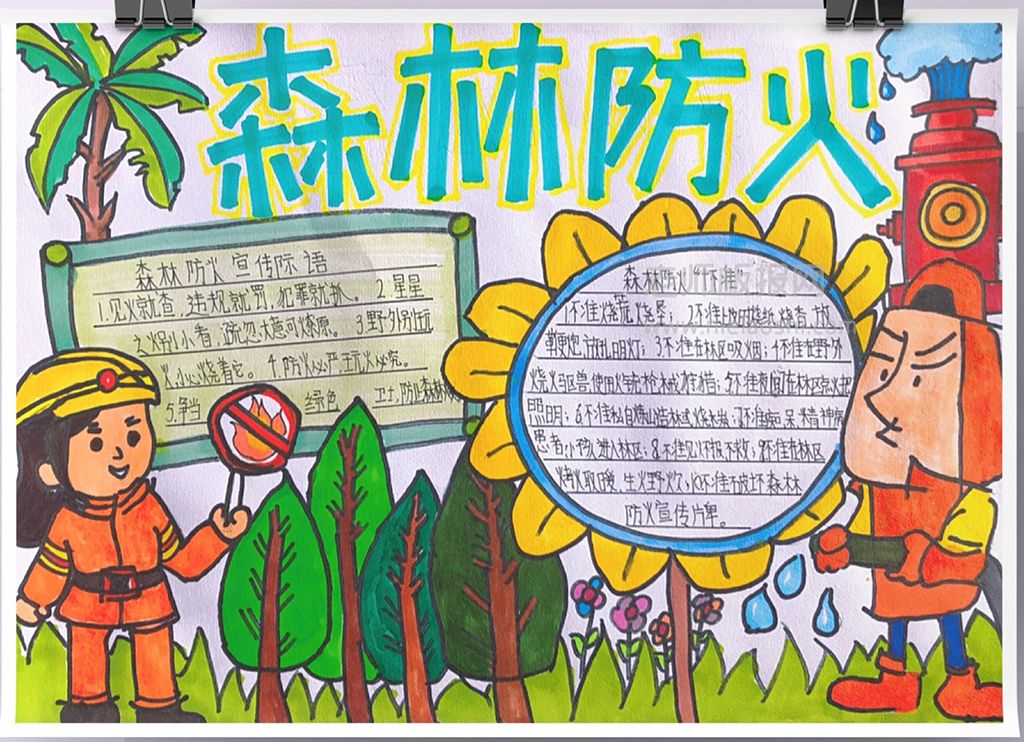 森林防火
森林防火宣传标语
1.见火就查,违规就罚,犯罪就抓。2.星星
之火别小看,疏忽大意可燎原。3.野外别玩
火,小心烧着它。4.防火必严,玩火必究。
5.争当 绿色 卫士,防止森林
森林防火“十不准”
1不准烧荒烧垦;2不准上坟烧纸、烧香、放
鞭炮、放孔明灯;3不准在林区吸烟;4不准在野外
烧火驱兽,使用火铳枪械狩猎;5不准夜间在林区点火把
照明;6不准私自炼山造林或烧木炭;7不准痴、呆、精神病
患者、小孩进入林区;8不准见火不报、不救;9不准在林区
烤火取暖、生火野炊;10不准破坏森林
防火宣传牌。